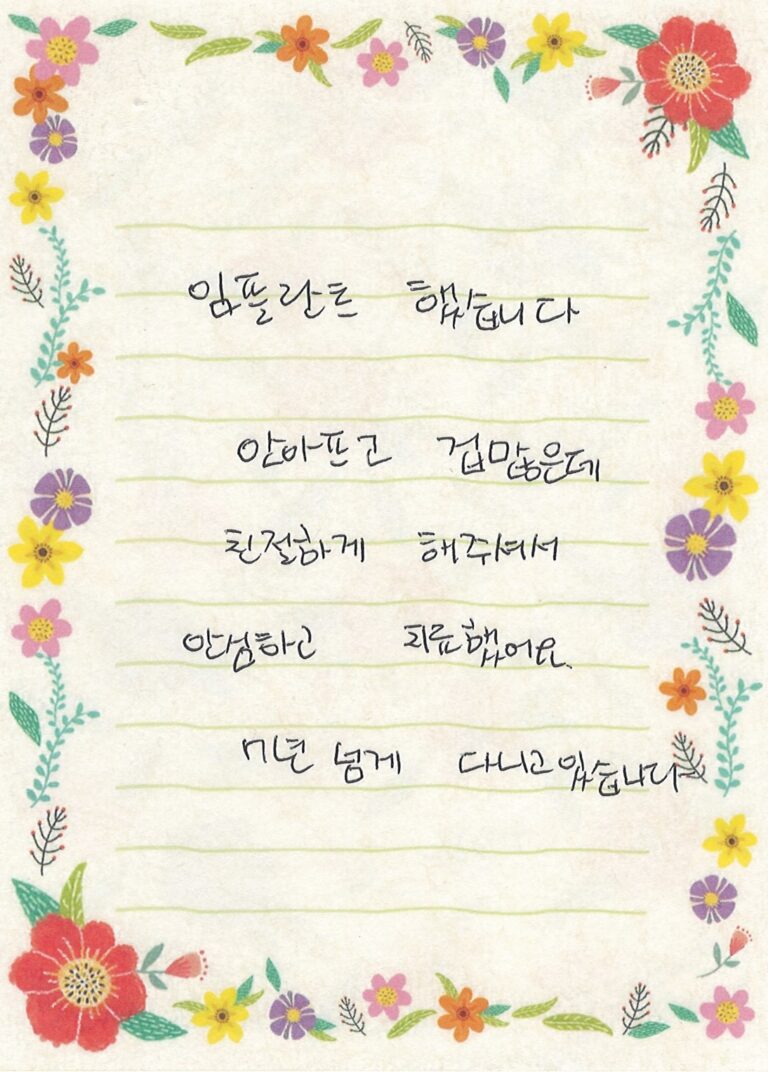 임플란트 했습니다
안아프고 겁많은데
친절하게 해주셔서
안심하고 치료했어요.
7년 넘게 다니고있습니다